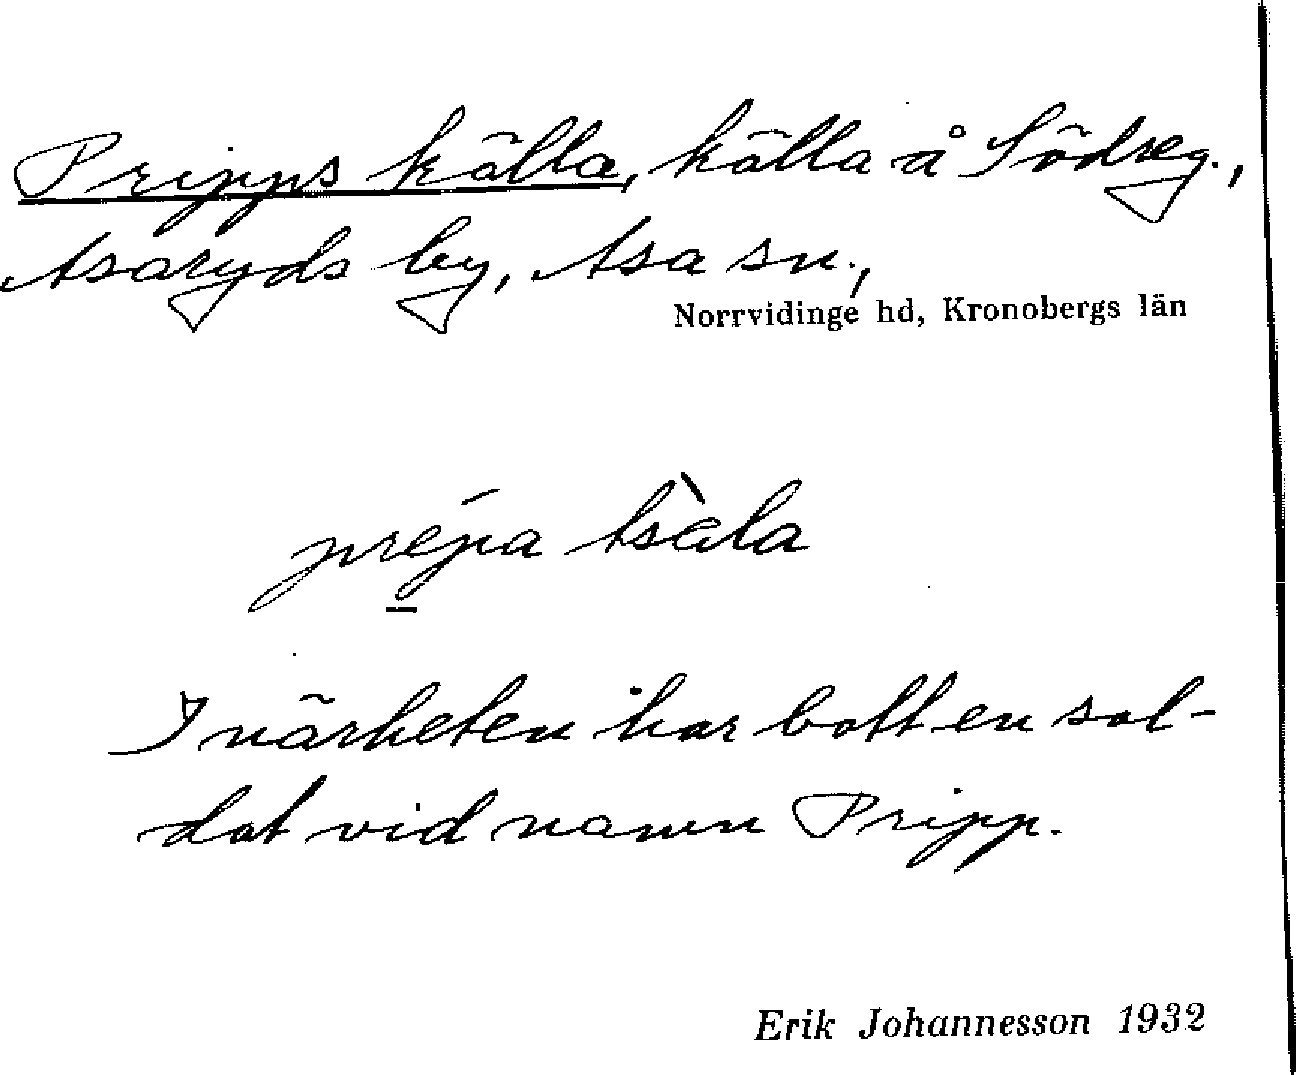 Pripps källa, källa å Södreg.,
Asaryds by, Asa sn.,
Norrvidinge hd, Kronobergs län
prepa tsàla
I närheten har bott en sol-
dat vid namn Pripp.
Erik Johannesson 1932